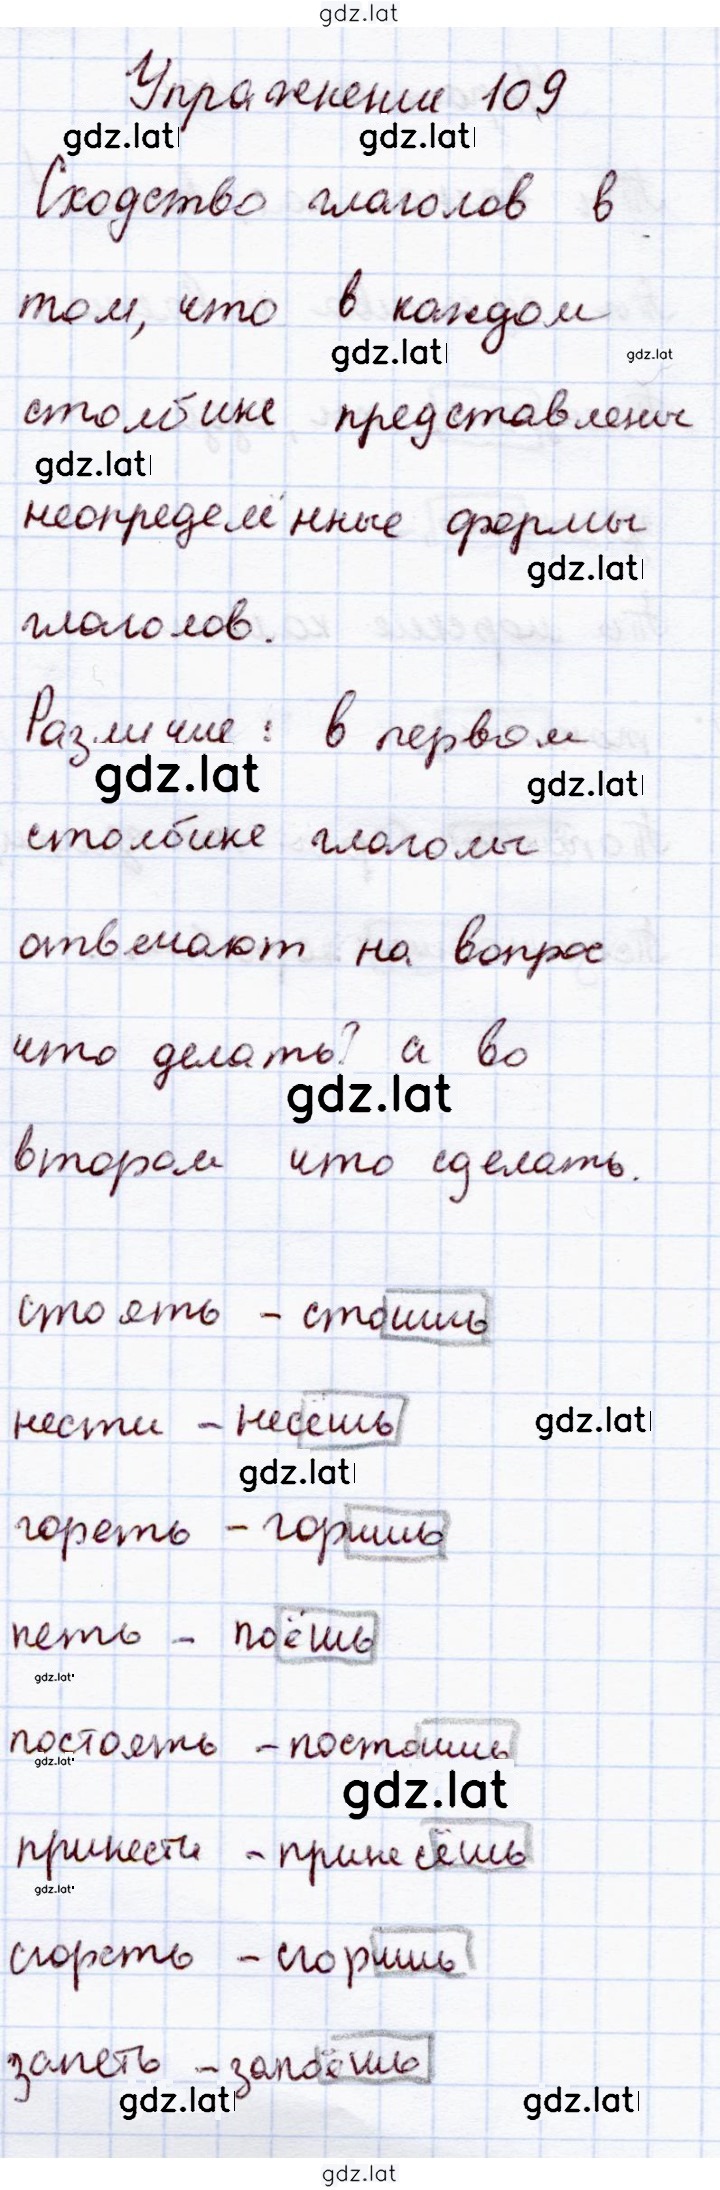 gdz.lat
Упражнение 109
gdz.lat gdz.lat
Сходство глаголов в
том, что в каждом
gdz.lat gdz.lat
столбике представлены
gdz.lat
неопределённые формы
gdz.lat
глаголов.
Различие: в первом
gdz.lat gdz.lat
столбике глаголы
отвечают на вопрос
что делать? а во
gdz.lat
втором что сделать.
стоять - стоишь
нести - несёшь
gdz.lat
gdz.lat
гореть - горишь
петь - поёшь
gdz.lat
постоять - постоишь
gdz.lat
gdz.lat
принести - принесёшь
gdz.lat
сгореть - сгоришь
запеть - запоёшь
gdz.lat gdz.lat
gdz.lat